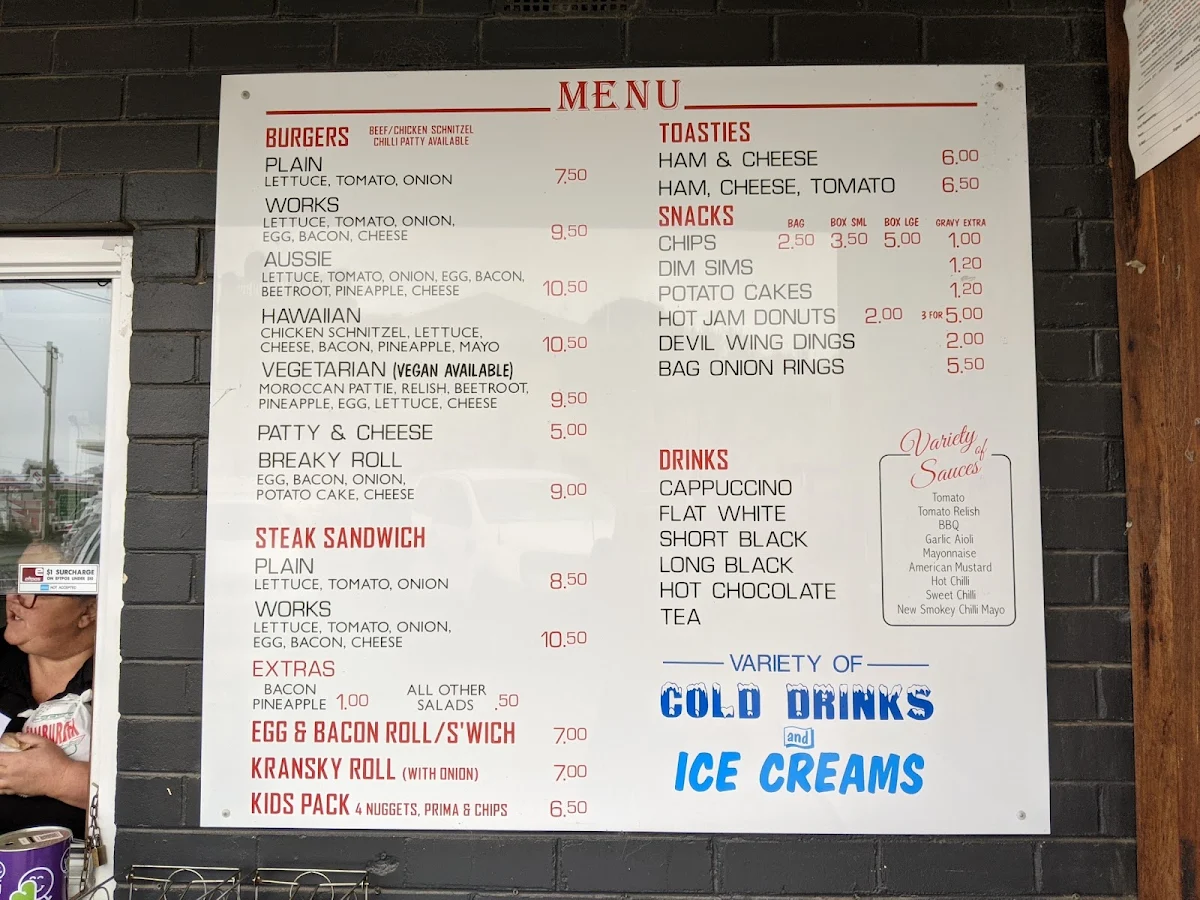 MENU
BURGERS BEEF/CHICKEN SCHNITZEL
CHILLI PATTY AVAILABLE
PLAIN
LETTUCE, TOMATO, ONION 7.50
WORKS
LETTUCE, TOMATO, ONION,
EGG, BACON, CHEESE 9.50
AUSSIE
LETTUCE, TOMATO, ONION, EGG, BACON,
BEETROOT, PINEAPPLE, CHEESE 10.50
HAWAIIAN
CHICKEN SCHNITZEL, LETTUCE,
CHEESE, BACON, PINEAPPLE, MAYO 10.50
VEGETARIAN (VEGAN AVAILABLE)
MOROCCAN PATTIE, RELISH, BEETROOT,
PINEAPPLE, EGG, LETTUCE, CHEESE 9.50
PATTY & CHEESE 5.00
BREAKY ROLL
EGG, BACON, ONION,
POTATO CAKE, CHEESE 9.00
STEAK SANDWICH
PLAIN
LETTUCE, TOMATO, ONION 8.50
WORKS
LETTUCE, TOMATO, ONION,
EGG, BACON, CHEESE 10.50
EXTRAS
BACON
PINEAPPLE 1.00
ALL OTHER
SALADS .50
EGG & BACON ROLL/S'WICH 7.00
KRANSKY ROLL (WITH ONION) 7.00
KIDS PACK 4 NUGGETS, PRIMA & CHIPS 6.50
TOASTIES
HAM & CHEESE 6.00
HAM, CHEESE, TOMATO 6.50
SNACKS BAG BOX SML BOX LGE GRAVY EXTRA
CHIPS 2.50 3.50 5.00 1.00
DIM SIMS 1.20
POTATO CAKES 1.20
HOT JAM DONUTS 2.00 3 FOR 5.00
DEVIL WING DINGS 2.00
BAG ONION RINGS 5.50
DRINKS
CAPPUCCINO
FLAT WHITE
SHORT BLACK
LONG BLACK
HOT CHOCOLATE
TEA
Variety
of
Sauces
Tomato
Tomato Relish
BBQ
Garlic Aioli
Mayonnaise
American Mustard
Hot Chilli
Sweet Chilli
New Smokey Chilli Mayo
VARIETY OF
COLD DRINKS
and
ICE CREAMS
$1 SURCHARGE
ON EFTPOS UNDER $10